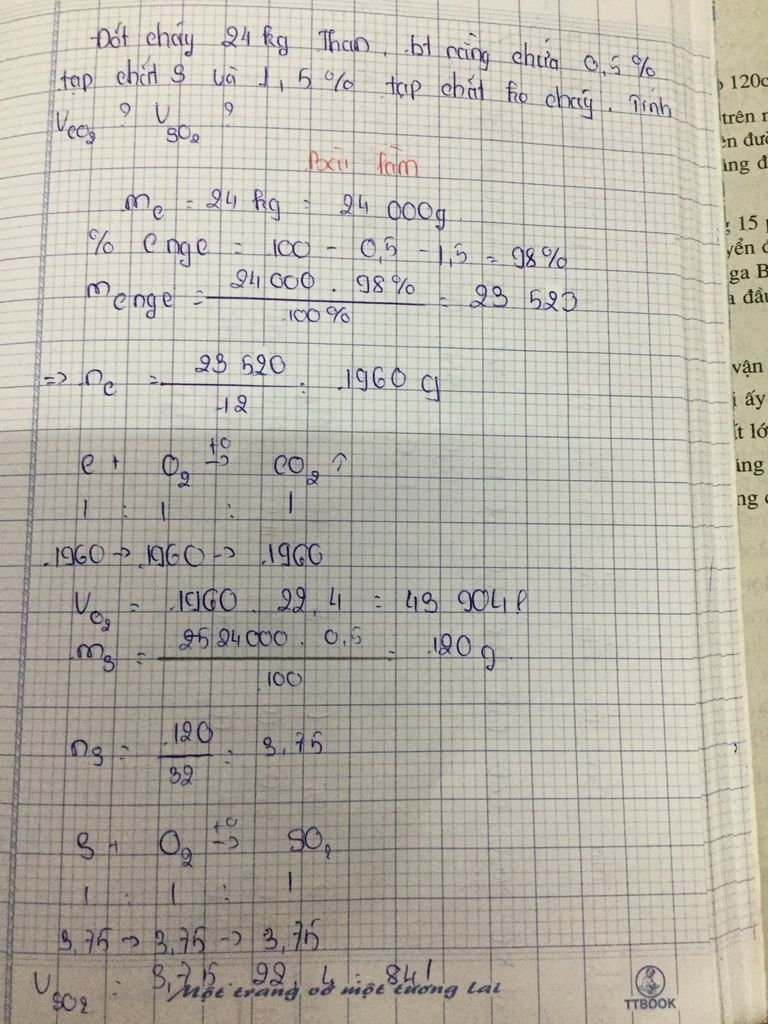 Đốt cháy 24 kg Than, bt rằng chứa 0,5%
tạp chất S và 1,5% tạp chất ko cháy. Tính
VCO2? VSO2?
Bài làm
mC = 24 kg = 24 000g
% C nge = 100 - 0,5 - 1,5 = 98%
mC nge = 24000 . 98% / 100% = 23 520
=> nC = 23 520 / 12 = 1960 g
C + O2 t°→ CO2 ↑
1 : 1 : 1
1960 → 1960 → 1960
VO2 = 1960 . 22,4 = 43 904 l
mS = 2524000 . 0,5 / 100 = 120 g
nS = 120 / 32 = 3,75
S + O2 t°→ SO2
1 : 1 : 1
3,75 → 3,75 → 3,75
VSO2 = 3,75 . 22,4 = 84 l
Một trang vở một tương lai
TTBOOK
120c
trên
15
ga B
a đầu
vận
i ấy
ất lớ